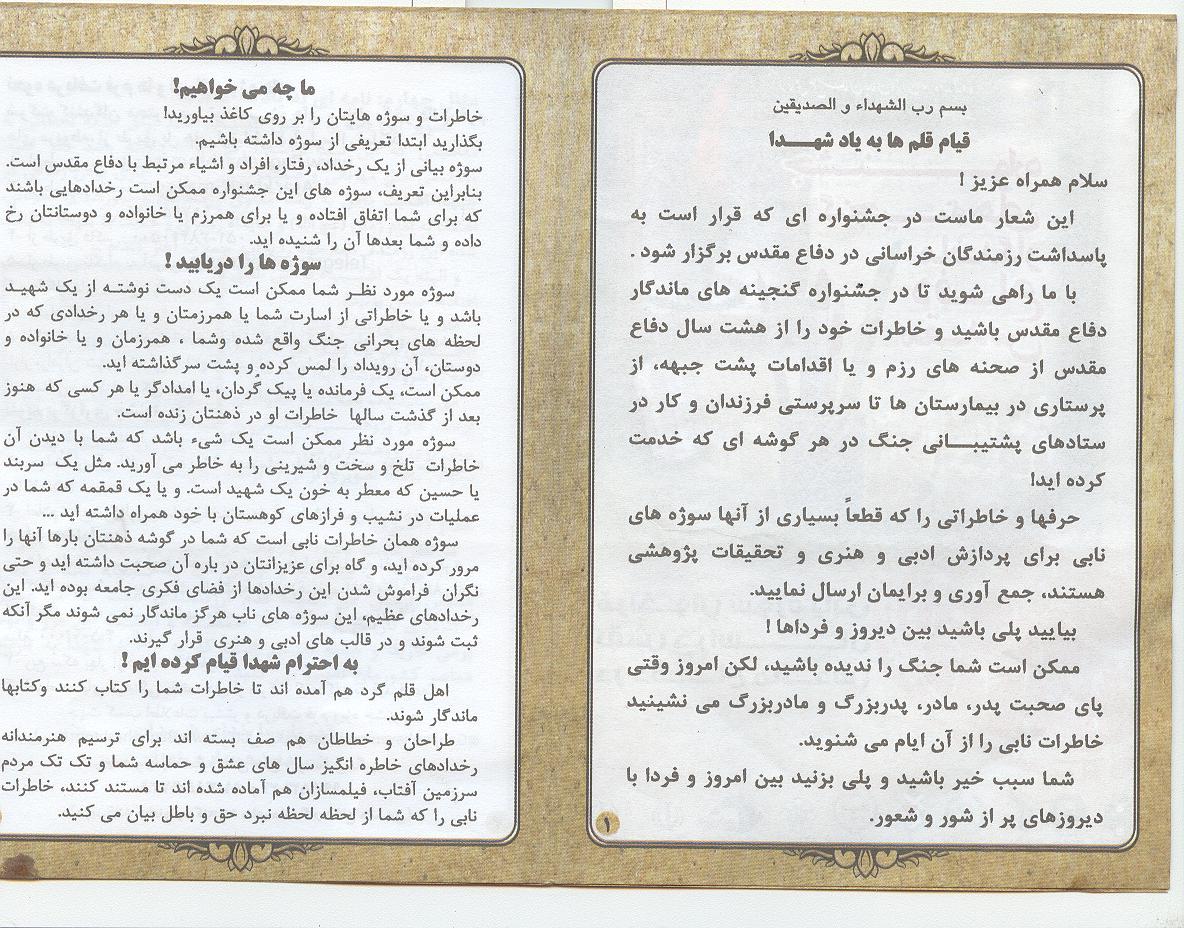 بسم رب الشهداء و الصدیقین
قیام قلم ها به یاد شهـــدا
سلام همراه عزیز !
این شعار ماست در جشنواره ای که قرار است به
پاسداشت رزمندگان خراسانی در دفاع مقدس برگزار شود .
با ما راهی شوید تا در جشنواره گنجینه های ماندگار
دفاع مقدس باشید و خاطرات خود را از هشت سال دفاع
مقدس از صحنه های رزم و یا اقدامات پشت جبهه، از
پرستاری در بیمارستان ها تا سرپرستی فرزندان و کار در
ستادهای پشتیبـــانی جنگ در هر گوشه ای که خدمت
کرده اید!
حرفها و خاطراتی را که قطعاً بسیاری از آنها سوژه های
نابی برای پردازش ادبی و هنری و تحقیقات پژوهشی
هستند، جمع آوری و برایمان ارسال نمایید.
بیایید پلی باشید بین دیروز و فرداها !
ممکن است شما جنگ را ندیده باشید، لکن امروز وقتی
پای صحبت پدر، مادر، پدربزرگ و مادربزرگ می نشینید
خاطرات نابی را از آن ایام می شنوید.
شما سبب خیر باشید و پلی بزنید بین امروز و فردا با
دیروزهای پر از شور و شعور.
۱
ما چه می خواهیم!
خاطرات و سوژه هایتان را بر روی کاغذ بیاورید!
بگذارید ابتدا تعریفی از سوژه داشته باشیم.
سوژه بیانی از یک رخداد، رفتار، افراد و اشیاء مرتبط با دفاع مقدس است.
بنابراین تعریف، سوژه های این جشنواره ممکن است رخدادهایی باشند
که برای شما اتفاق افتاده و یا برای همرزم یا خانواده و دوستانتان رخ
داده و شما بعدها آن را شنیده اید.
سوژه ها را دریابید !
سوژه مورد نظـر شما ممکن است یک دست نوشتـه از یک شهیـد
باشد و یا خاطراتی از اسارت شما یا همرزمتان و یا هر رخدادی که در
لحظه های بحرانی جنگ واقع شده وشما ، همرزمان و یا خانواده و
دوستان، آن رویداد را لمس کرده و پشت سرگذاشته اید.
ممکن است، یک فرمانده یا پیک گردان، یا امدادگر یا هر کسی که هنوز
بعد از گذشت سالها خاطرات او در ذهنتان زنده است.
سوژه مورد نظر ممکن است یک شیء باشد که شما با دیدن آن
خاطرات تلخ و سخت و شیرینی را به خاطر می آورید. مثل یک سربند
یا حسین که معطر به خون یک شهید است. و یا یک قمقمه که شما در
عملیات در نشیب و فرازهای کوهستان با خود همراه داشته اید ...
سوژه همان خاطرات نابی است که شما در گوشه ذهنتان بارها آنها را
مرور کرده اید، و گاه برای عزیزانتان در باره آن صحبت داشته اید و حتی
نگران فراموش شدن این رخدادها از فضای فکری جامعه بوده اید. این
رخدادهای عظیم، این سوژه های ناب هرگز ماندگار نمی شوند مگر آنکه
ثبت شوند و در قالب های ادبی و هنری قرار گیرند.
به احترام شهدا قیام کرده ایم !
اهل قلم گرد هم آمده اند تا خاطرات شما را کتاب کنند وکتابها
ماندگار شوند.
طراحان و خطاطان هم صف بسته اند برای ترسیم هنرمندانه
رخدادهای خاطره انگیز سال های عشق و حماسه شما و تک تک مردم
سرزمین آفتاب، فیلمسازان هم آماده شده اند تا مستند کنند، خاطرات
نابی را که شما از لحظه لحظه نبرد حق و باطل بیان می کنید.